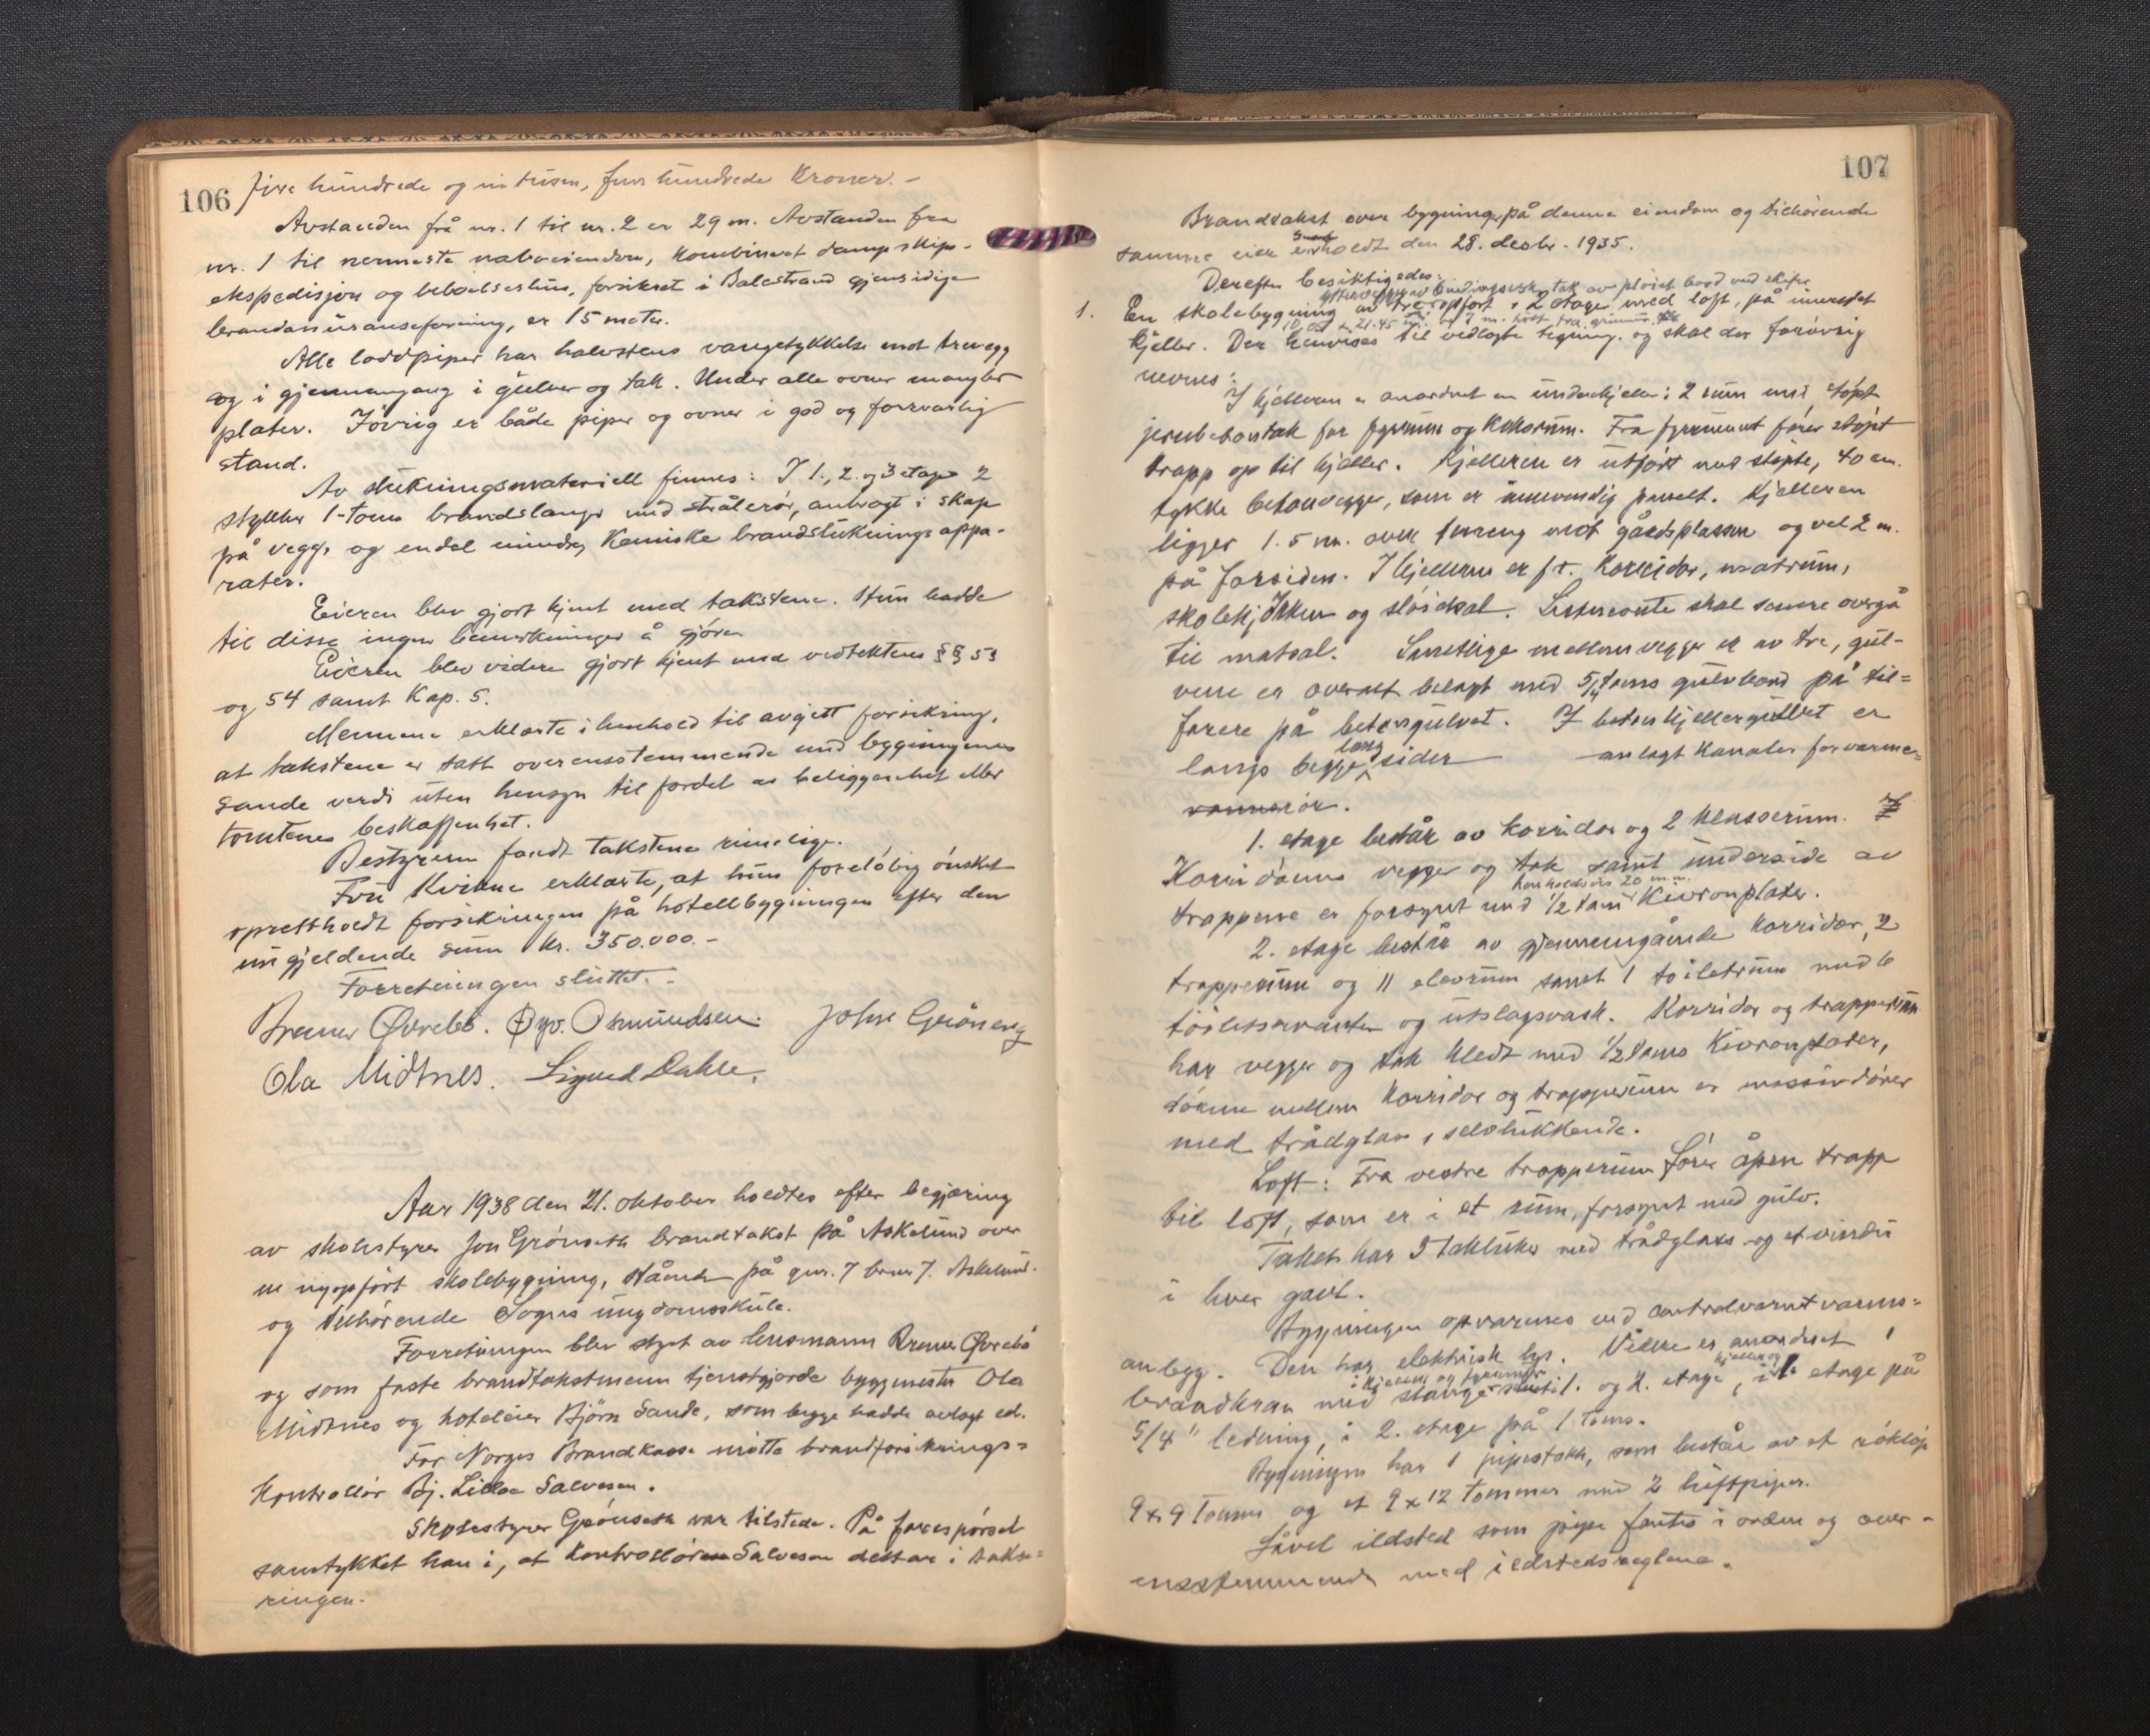 106
fire hundrede og ni tusen, fem hundrede Kroner. -
Avstanden frå nr. 1 til nr. 2 er 29 m. Avstanden fra
nr. 1 til nermeste naboeiendom, Kombinert dampskips-
ekspedisjon og beboelseshus, forsikret i Balestrand gjensidige
brandassuranseforening, er 15 meter.
Alle loddpiper har halvstens vangetykkelse mot trevegg
og i gjennemgang i gulver og tak. Under alle ovner mangler
plater. Iøvrig er både piper og ovner i god og forsvarlig
stand.
Av slukningsmateriell finnes: I 1., 2. og 3 etage 2
stykker 1-toms brandslange med strålerør, anbragt i skap
på vegg, og endel mindre Kemiske brandsluknings appa-
rater.
Eieren blev gjort kjent med takstene. Hun hadde
til disse ingen bemerkninger å gjøre.
Eieren blev videre gjort kjent med vedtektenes §§ 53
og 54 samt Kap. 5.
Mennene erklærte i henhold til avgitt forsikring,
at takstene er satt overensstemmende med bygningenes
sande verdi uten hensyn til fordel av beliggenhet eller
tomtenes beskaffenhet.
Bestyreren fandt takstene rimelige.
Fru Kvikne erklærte, at hun foreløbig ønsket
oprettholdt forsikringen på hotellbygningen efter den
nu gjeldende sum kr. 350.000.-
Forretningen sluttet. -
Bremer Øvrebø. Øyv. Osmundsen. John Grøneng
Ola Midtnes. Sigurd Dahle.
Aar 1938 den 21. oktober holdtes efter begjæring
av skolestyrer Jon Grønseth brandtakst på Askelund over
en nyopført skolebygning, stående på gnr. 7 bnr. 7. Askelund
og tilhørende Sogns ungdomsskule.
Forretningen blev styrt av lensmann Bremer Øvrebø
og som faste brandtakstmenn tjenstgjorde byggmester Ola
Midtnes og hoteleier Bjørn Sande, som begge hadde avlagt ed.
For Norges Brandkasse møtte brandforsikrings=
Kontrollør Bj. Lilloe Salvesen.
Skolestyrer Grønseth var tilstede. På forespørsel
samtykket han i, at Kontrollør Salvesen deltar i takse=
ringen.
107
Brandtakst over bygninger på denne eiendom og tilhørende
samme eier er holdt den 28. desbr. 1935.
Derefter besiktigedes:
Yttervegger av bindingsverk, tak av pløiet bord med skifer
1. En skolebygning av tre opført i 2 etager med loft, på innredet
kjeller. Der henvises til vedlagte tegning. og skal der forøvrig
nevnes:
I kjelleren er anordnet en underkjeller i 2 rum med støpt
jernbetontak for fyrrum og Koksrum. Fra fyrrummet fører støpt
trapp op til kjeller. Kjelleren er utført med støpte, 40 cm.
tykke betonvegger, som er innvendig panelt. Kjelleren
ligger 1.5 m. over terreng mot gårdsplassen og vel 2 m.
på forsiden. I kjelleren er f.t. Korridor, matrum,
skolekjøkken og sløidsal. Sistnevnte skal senere overgå
til matsal. Samtlige mellemvegger er av tre, gul-
vene er overalt belagt med 5/4 toms gulvbord på til=
farere på betongulvet. I betonkjellergulvet er
langs begge lang sider anlagt Kanaler for varme=
rør.
1. etage består av Korridor og 2 Klasserum.
Korridorens vegger og tak samt underside av
henholdsvis 20 m.m.
trappene er forsynt med 1/2 tom Kivronplater.
2. etage består av gjennemgående Korridor, 2
trapperum og 11 elevrum samt 1 toiletrum med 6
toiletservanter og utslagsvask. Korridor og trapperum
har vegger og tak kledt med 1/2 toms Kivronplater,
dørene mellem Korridor og trapperum er massivdører
med trådglas, selvlukkende.
Loft: Fra vestre trapperum fører åpen trapp
til loft, som er i et rum, forsynt med gulv.
Taket har 5 takluker med trådglass og et vindu
i hver gavl.
Bygningen opvarmes ved centralvarmtvanns=
anlegg. Den har elektrisk lys. Videre er anordnet 1
i kjelleren og fyrrummet
kjeller og
brandkran med slange i 1. og 2. etage, i 1. etage på
5/4" ledning, i 2. etage på 1 toms.
Bygningen har 1 pipestokk, som består av et røkløp
9 x 9 tommer og et 9 x 12 tommer med 2 luftpiper.
Såvel ildsted som pipe fantes i orden og over-
ensstemmende med ildstedsreglene.